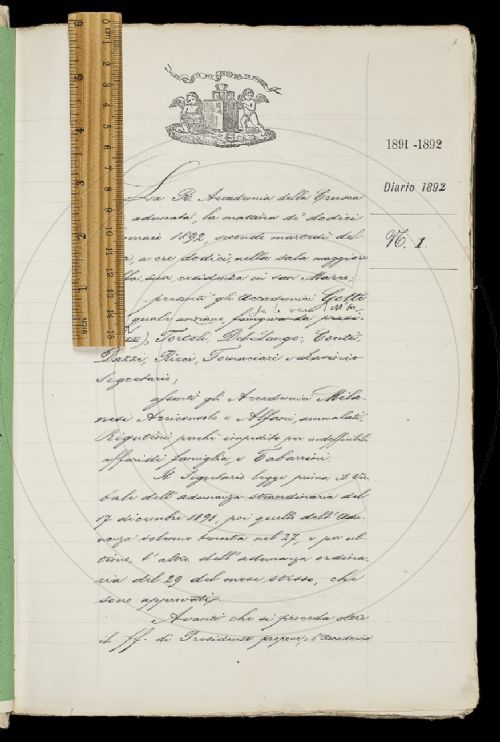 3
1891-1892
Diario 1892
N. 1.
La R. Accademia della Crusca
adunata, la mattina de' dodici
1892, secondo martedì del
a ore dodici, nella sala maggiore
sua residenza in San Marco;
presenti gli Accademici Gotti
quale anziano, funzionante da
Tortoli, Del Lungo, Conti,
Dazzi, Rizzi, Fornaciari e
Segretario;
assenti gli Accademici Mila-
nesi Arciconsolo e Alfani, ammalati,
Rigutini perché impedito per indefettibili
affari di famiglia, e Tabarrini.
Il Segretario legge prima il Ver-
bale dell'adunanza straordinaria del
17 dicembre 1891, poi quello dell'Adu-
nanza solenne tenuta nel 27, e per ul-
timo, l'altro dell'adunanza ordina-
ria del 29 del mese stesso, che
sono approvati.
Avanti che si proceda oltre
il ff. di Presidente propone, e l'Accademia